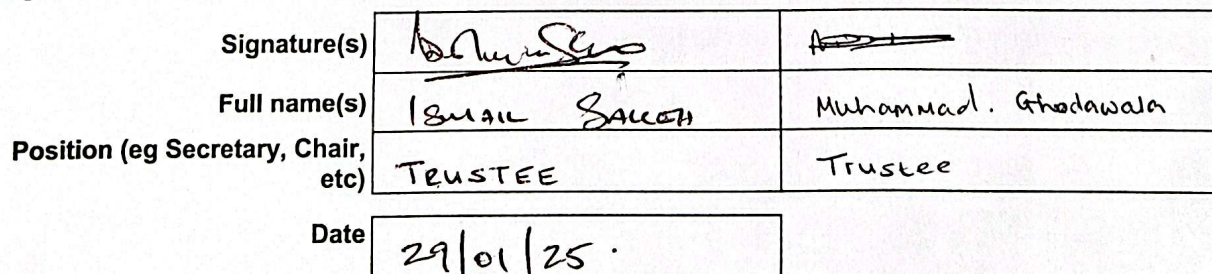 Signature(s)
Full name(s) ISMAIL SALLOH Muhammad. Ghodawala
Position (eg Secretary, Chair,
etc) TRUSTEE Trustee
Date 29/01/25.